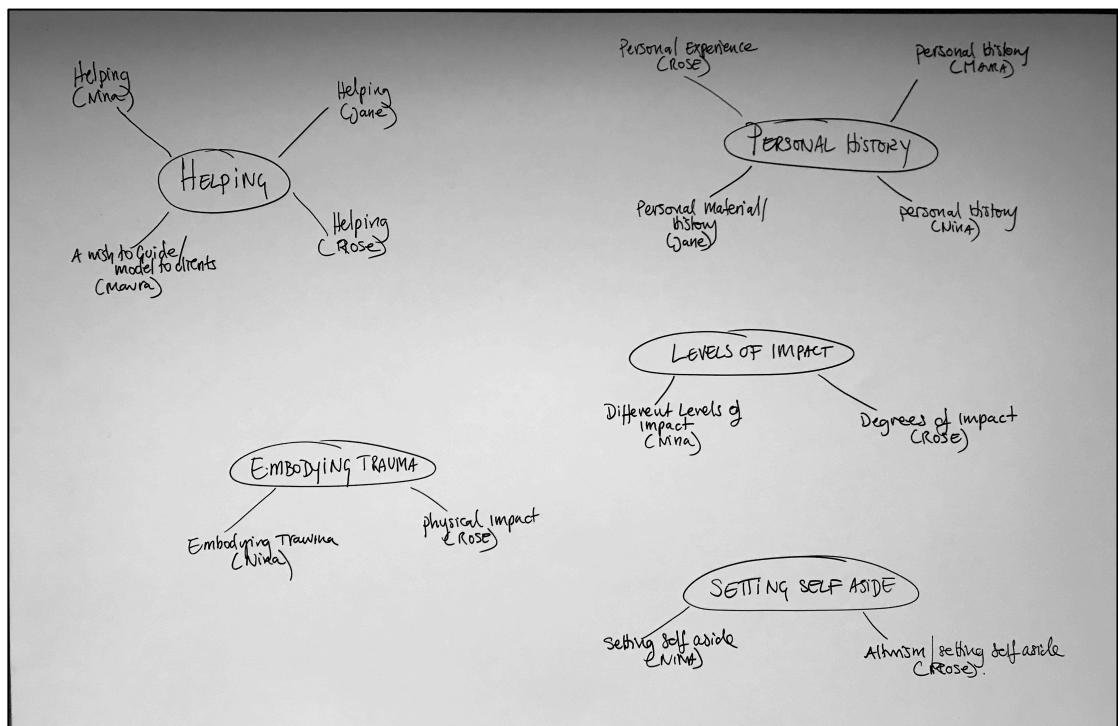 Helping
(Nina)
Helping
(Jane)
HELPING
A wish to Guide/
model to clients
(Mavra)
Helping
(Rose)
Personal Experience
(ROSE)
personal History
(MAVRA)
PERSONAL HISTORY
Personal Material/
History
(Jane)
personal History
(NINA)
LEVELS OF IMPACT
Different Levels of
impact
(Nina)
Degrees of impact
(ROSE)
EMBODYING TRAUMA
Embodying Trauma
(Nina)
physical impact
(ROSE)
SETTING SELF ASIDE
setting self aside
(NINA)
Altruism/setting self aside
(ROSE).